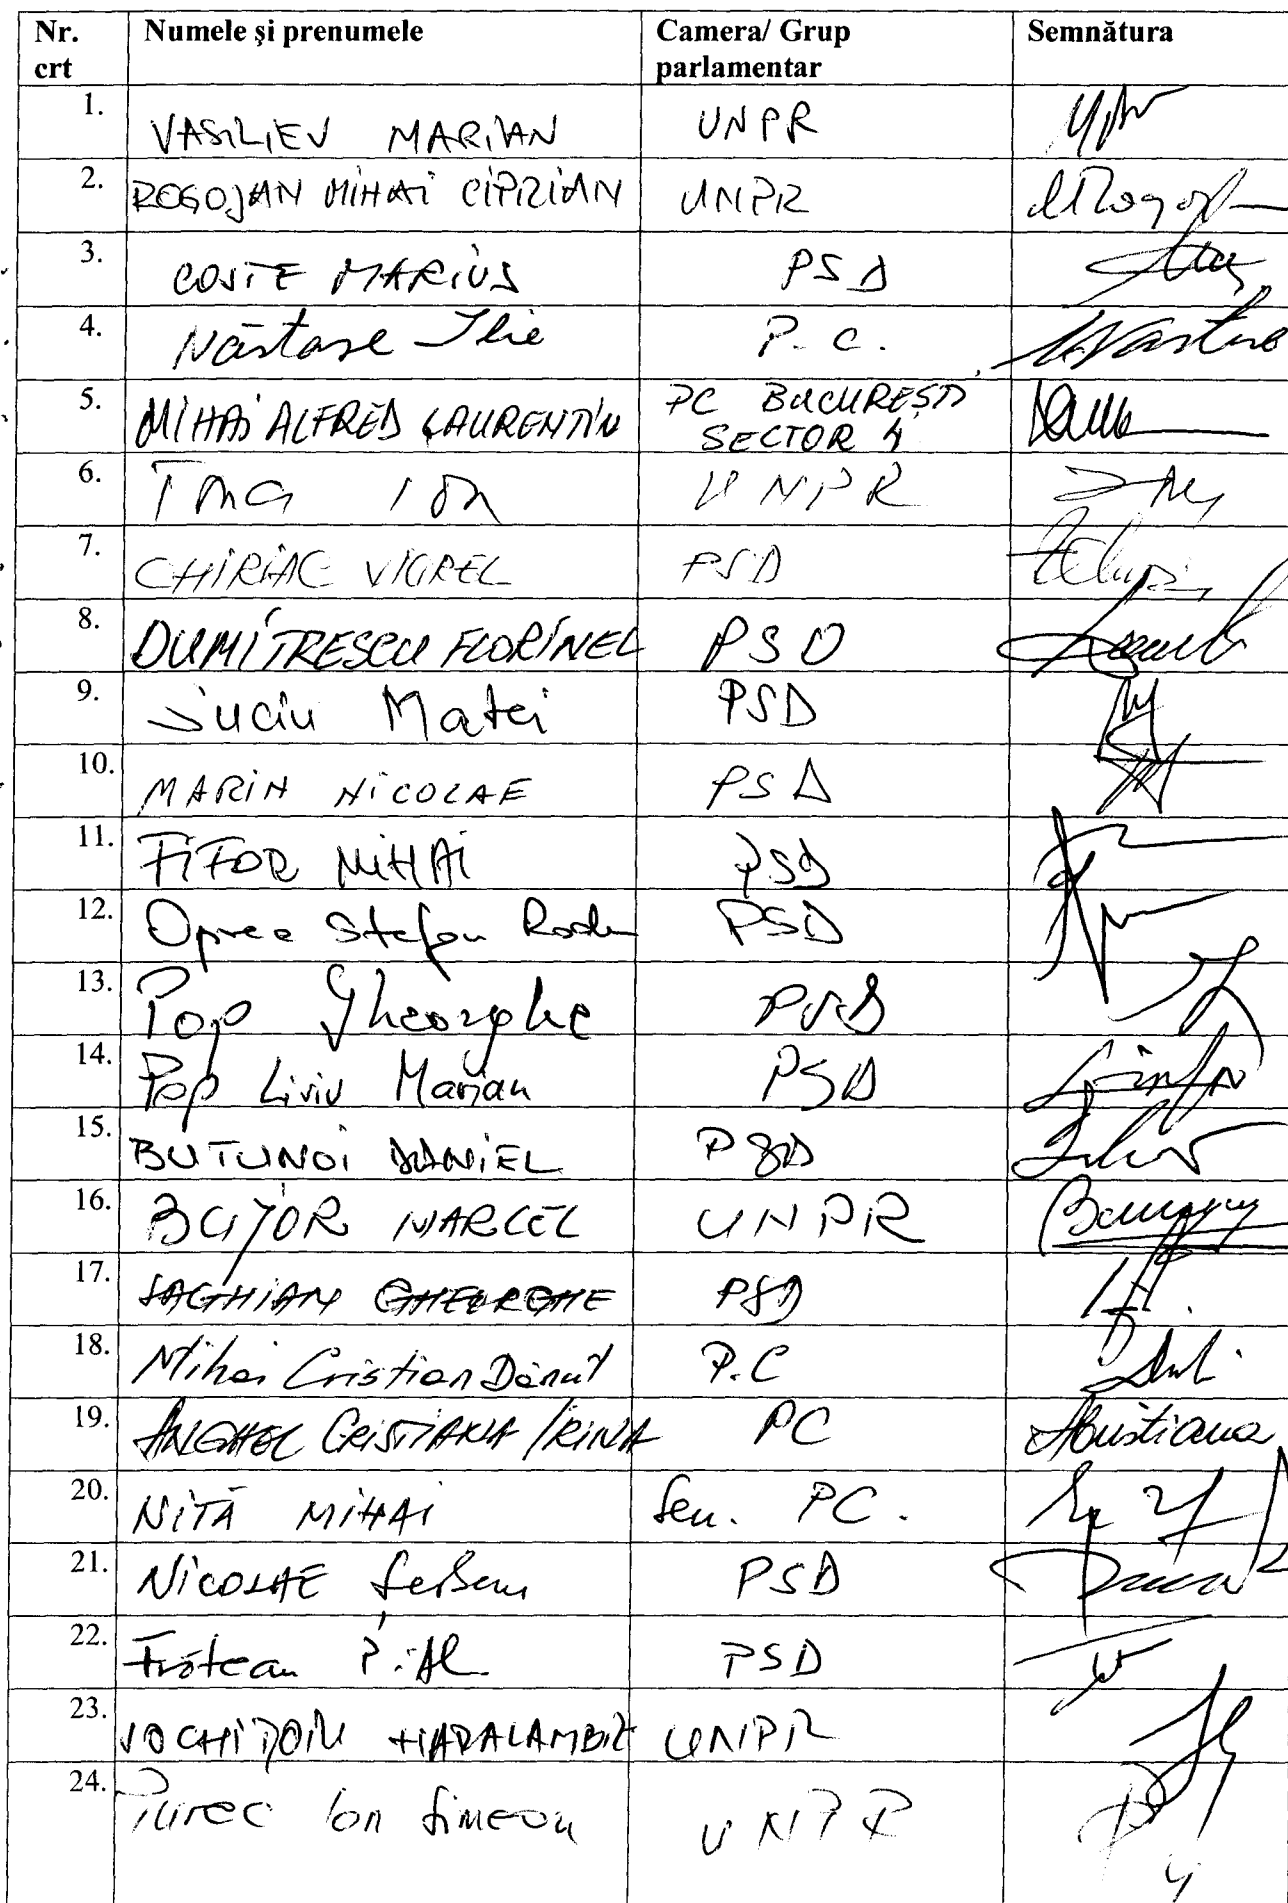 Nr. crt Numele şi prenumele Camera/ Grup parlamentar Semnătura
1. VASILIEV MARIAN UNPR
2. ROGOJAN MIHAI CIPRIAN UNPR
3. COSTE MARIUS PSD
4. Năstase Ilie P.C.
5. MIHAI ALFRED LAURENTIU PC BUCURESTI SECTOR 4
6. Ion UNPR
7. CHIRIAC VIOREL PSD
8. DUMITRESCU FLORINEL PSD
9. Suciu Matei PSD
10. MARIN NICOLAE PSD
11. FIFOR MIHAI PSD
12. Oprea Stefan Radu PSD
13. Pop Gheorghe
14. Pop Liviu Marian PSD
15. BUTUNOI DANIEL PSD
16. BUJOR MARCEL UNPR
17. SAGHIAN GHEORGHE PSD
18. Mihai Cristian Dănuț P.C
19. ANGHEL CRISTIANA IRINA PC
20. NITĂ MIHAI Sen. PC.
21. NICOLAE Serban PSD
22. PSD
23. VOCHIȚOIU HARALAMBIE UNPR
24. Ion Simeon UNPR